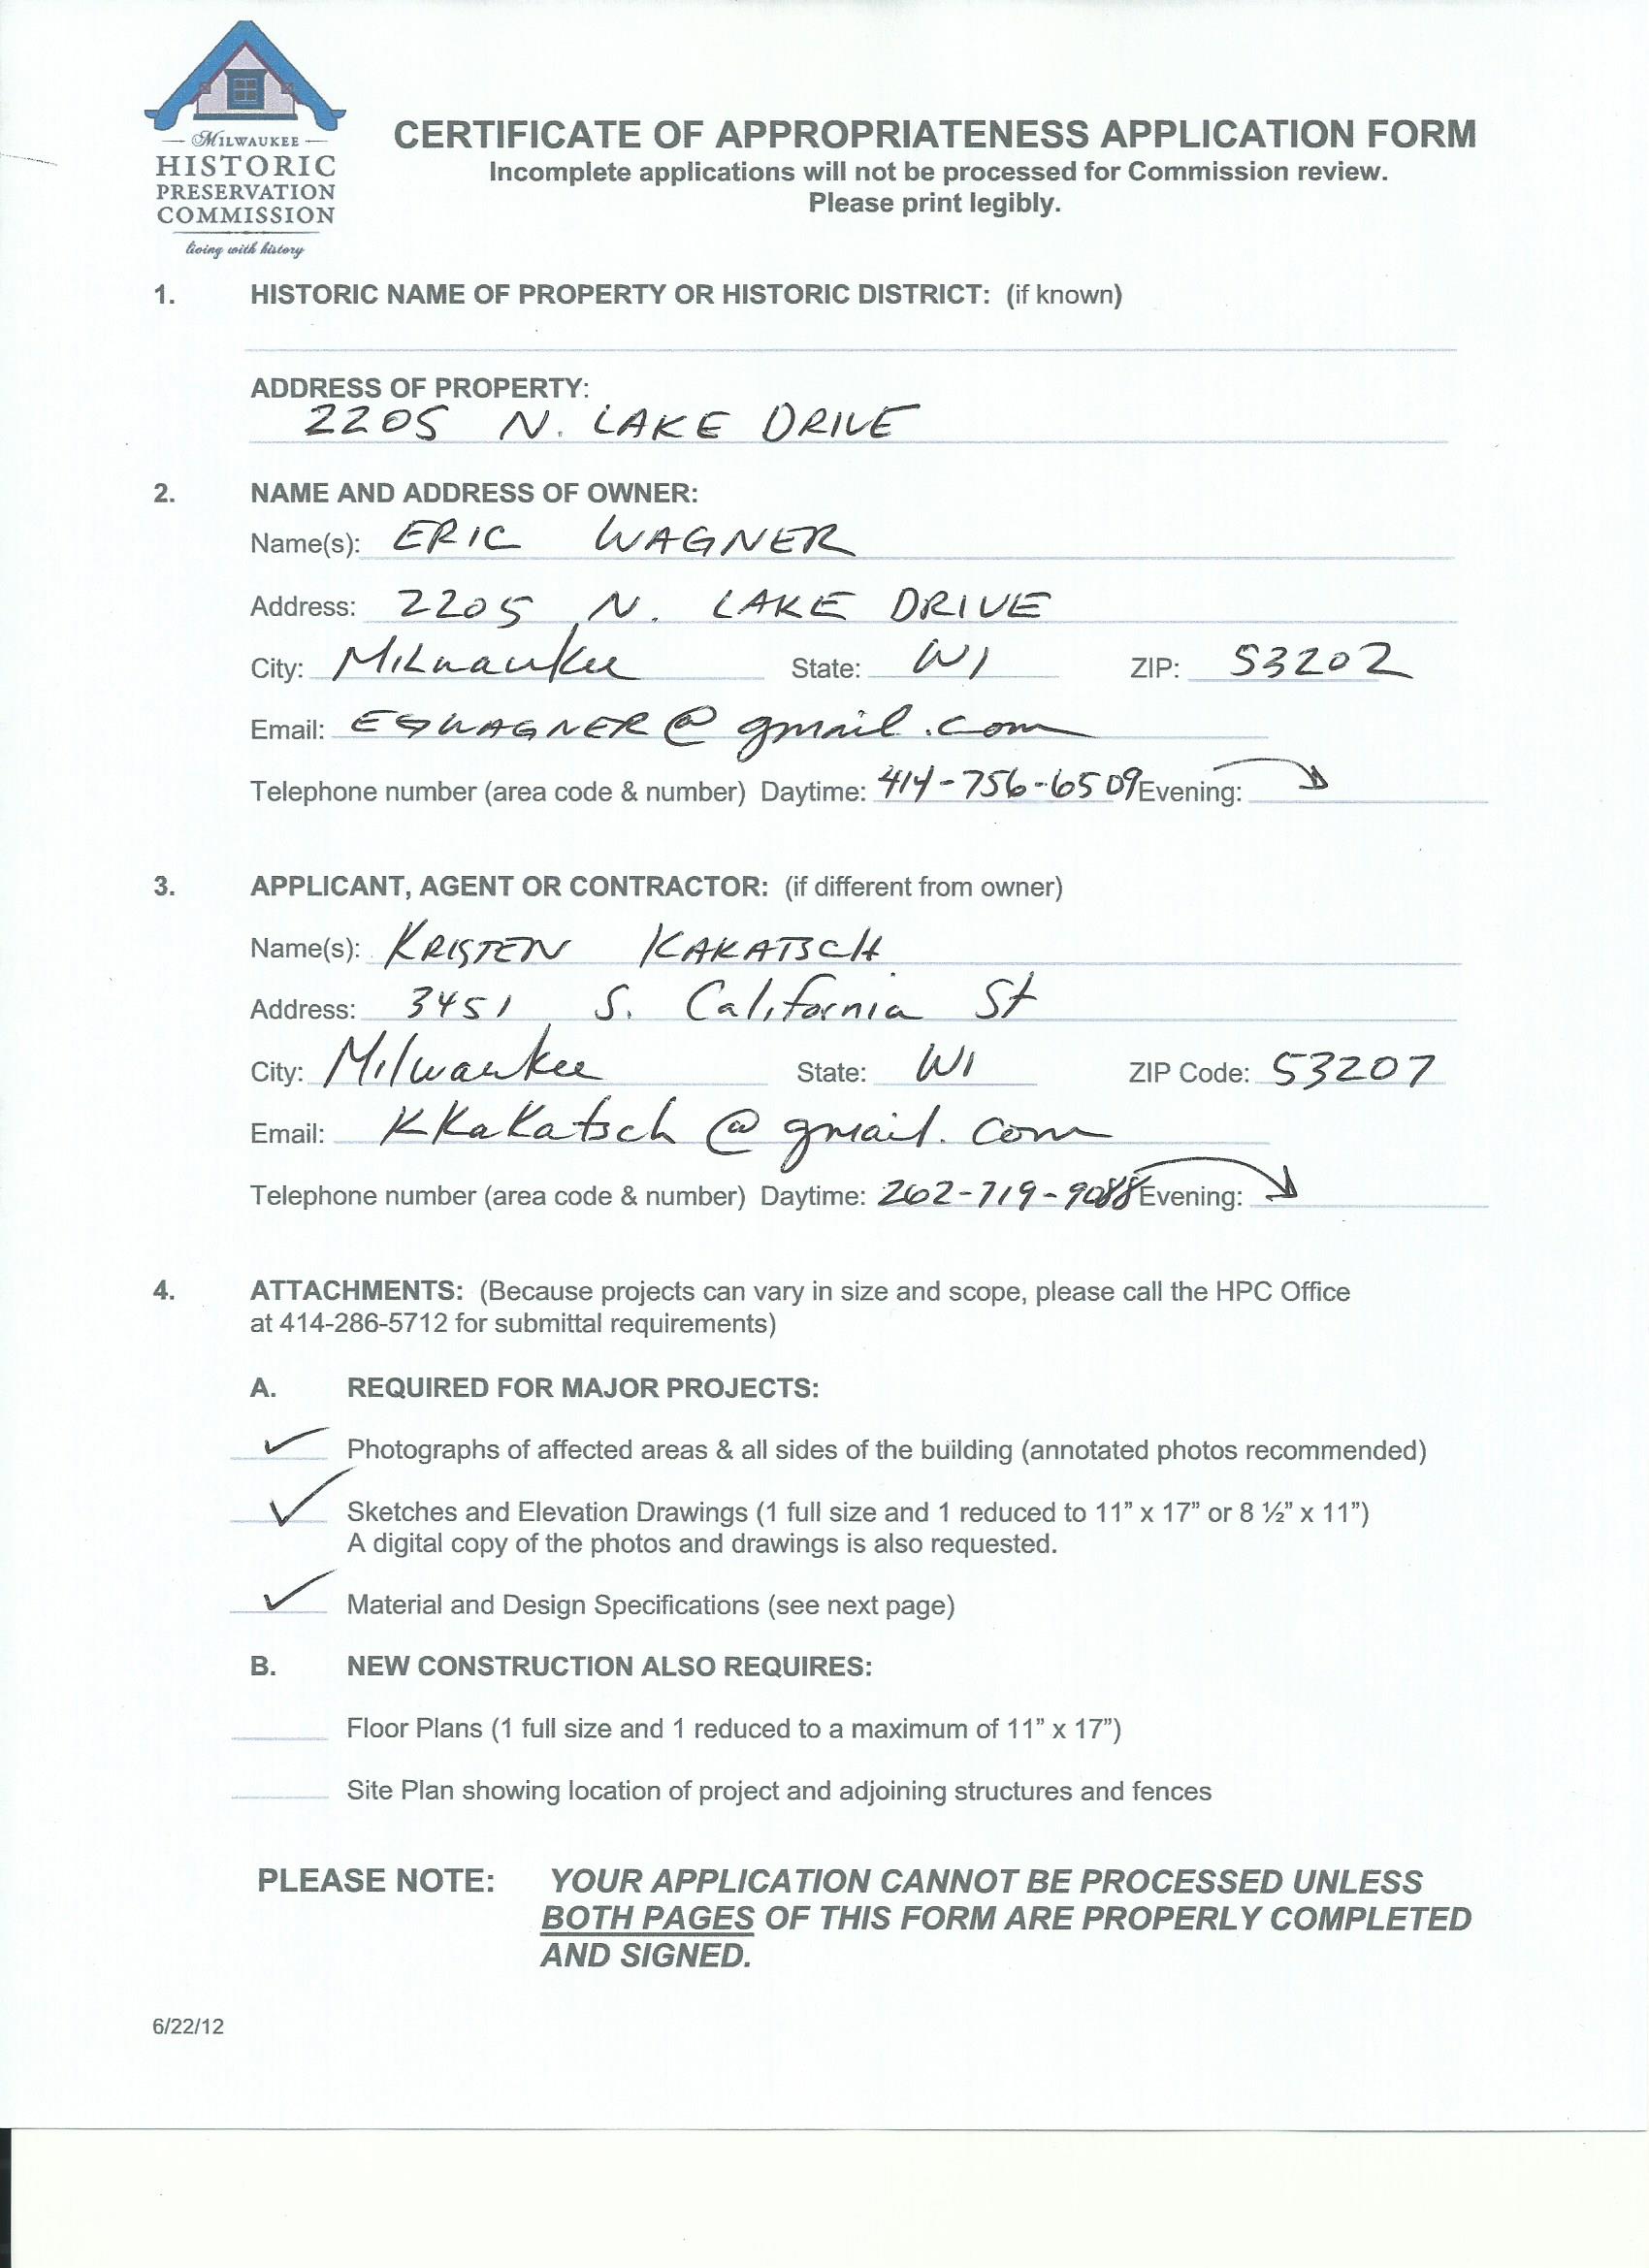 MILWAUKEE
HISTORIC
PRESERVATION
COMMISSION
living with history
CERTIFICATE OF APPROPRIATENESS APPLICATION FORM
Incomplete applications will not be processed for Commission review.
Please print legibly.
1. HISTORIC NAME OF PROPERTY OR HISTORIC DISTRICT: (if known)
ADDRESS OF PROPERTY:
2205 N. LAKE DRIVE
2. NAME AND ADDRESS OF OWNER:
Name(s): ERIC WAGNER
Address: 2205 N. LAKE DRIVE
City: Milwaukee State: WI ZIP: 53202
Email: EGWAGNER@gmail.com
Telephone number (area code & number) Daytime: 414-756-6509 Evening:
3. APPLICANT, AGENT OR CONTRACTOR: (if different from owner)
Name(s): KRISTEN KAKATSCH
Address: 3451 S. California St
City: Milwaukee State: WI ZIP Code: 53207
Email: KKaKatsch@gmail.com
Telephone number (area code & number) Daytime: 262-719-9088 Evening:
4. ATTACHMENTS: (Because projects can vary in size and scope, please call the HPC Office
at 414-286-5712 for submittal requirements)
A. REQUIRED FOR MAJOR PROJECTS:
Photographs of affected areas & all sides of the building (annotated photos recommended)
Sketches and Elevation Drawings (1 full size and 1 reduced to 11” x 17” or 8 ½” x 11”)
A digital copy of the photos and drawings is also requested.
Material and Design Specifications (see next page)
B. NEW CONSTRUCTION ALSO REQUIRES:
Floor Plans (1 full size and 1 reduced to a maximum of 11” x 17”)
Site Plan showing location of project and adjoining structures and fences
PLEASE NOTE: YOUR APPLICATION CANNOT BE PROCESSED UNLESS
BOTH PAGES OF THIS FORM ARE PROPERLY COMPLETED
AND SIGNED.
6/22/12